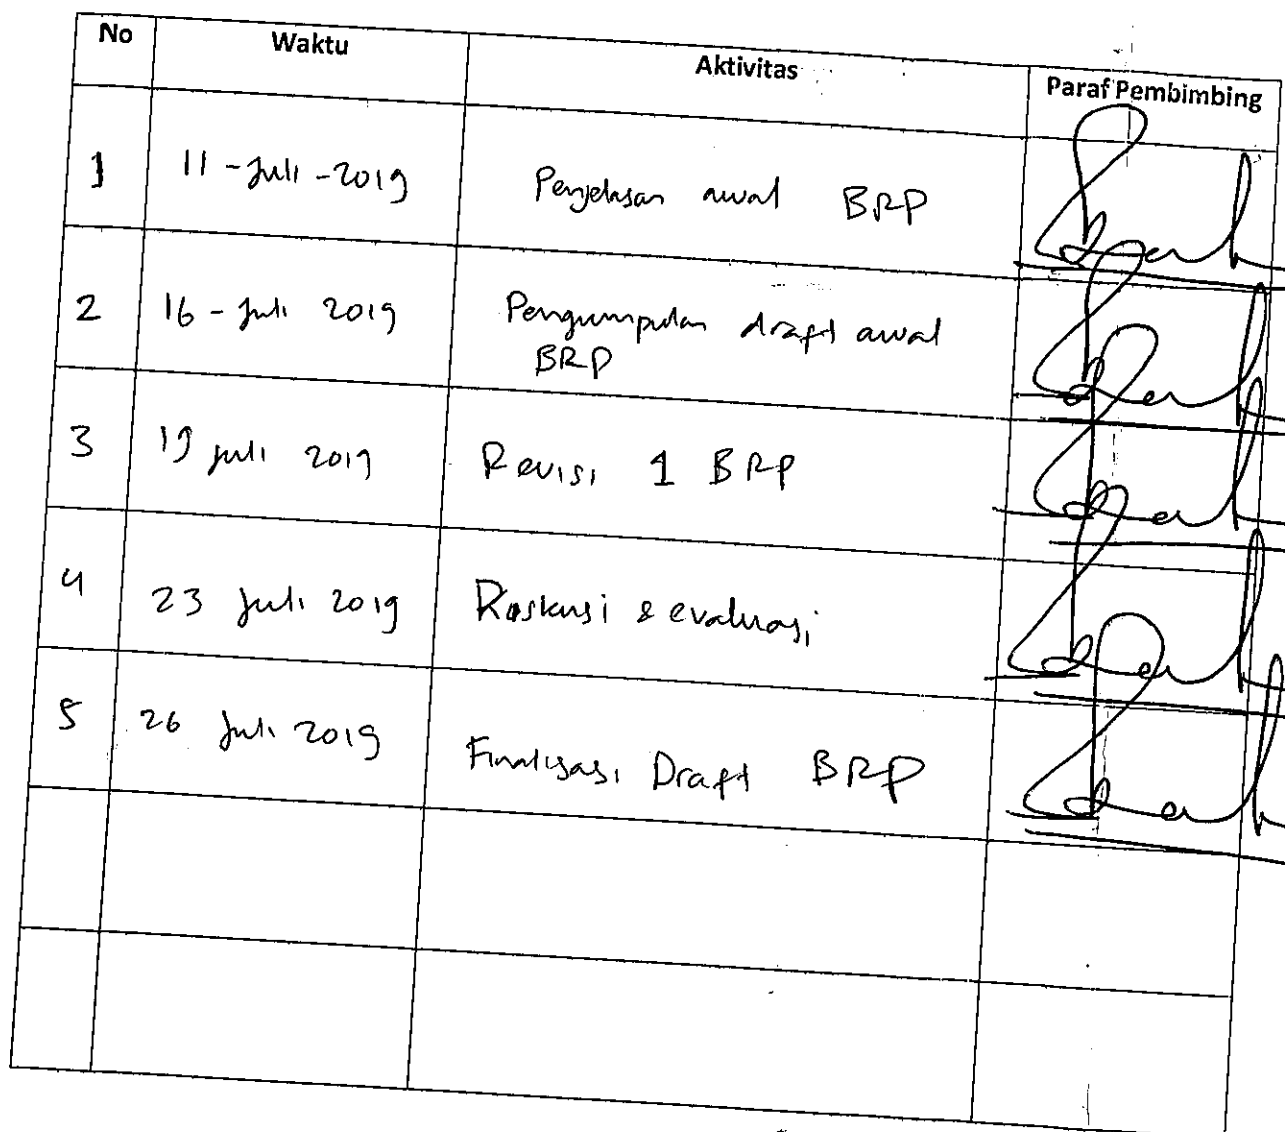 No Waktu Aktivitas Paraf Pembimbing
1 11-Juli-2019 Penjelasan awal BRP
2 16-Juli 2019 Pengumpulan draft awal
BRP
3 19 juli 2019 Revisi 1 BRP
4 23 Juli 2019 & evaluasi
5 26 Juli 2019 Finalisasi Draft BRP